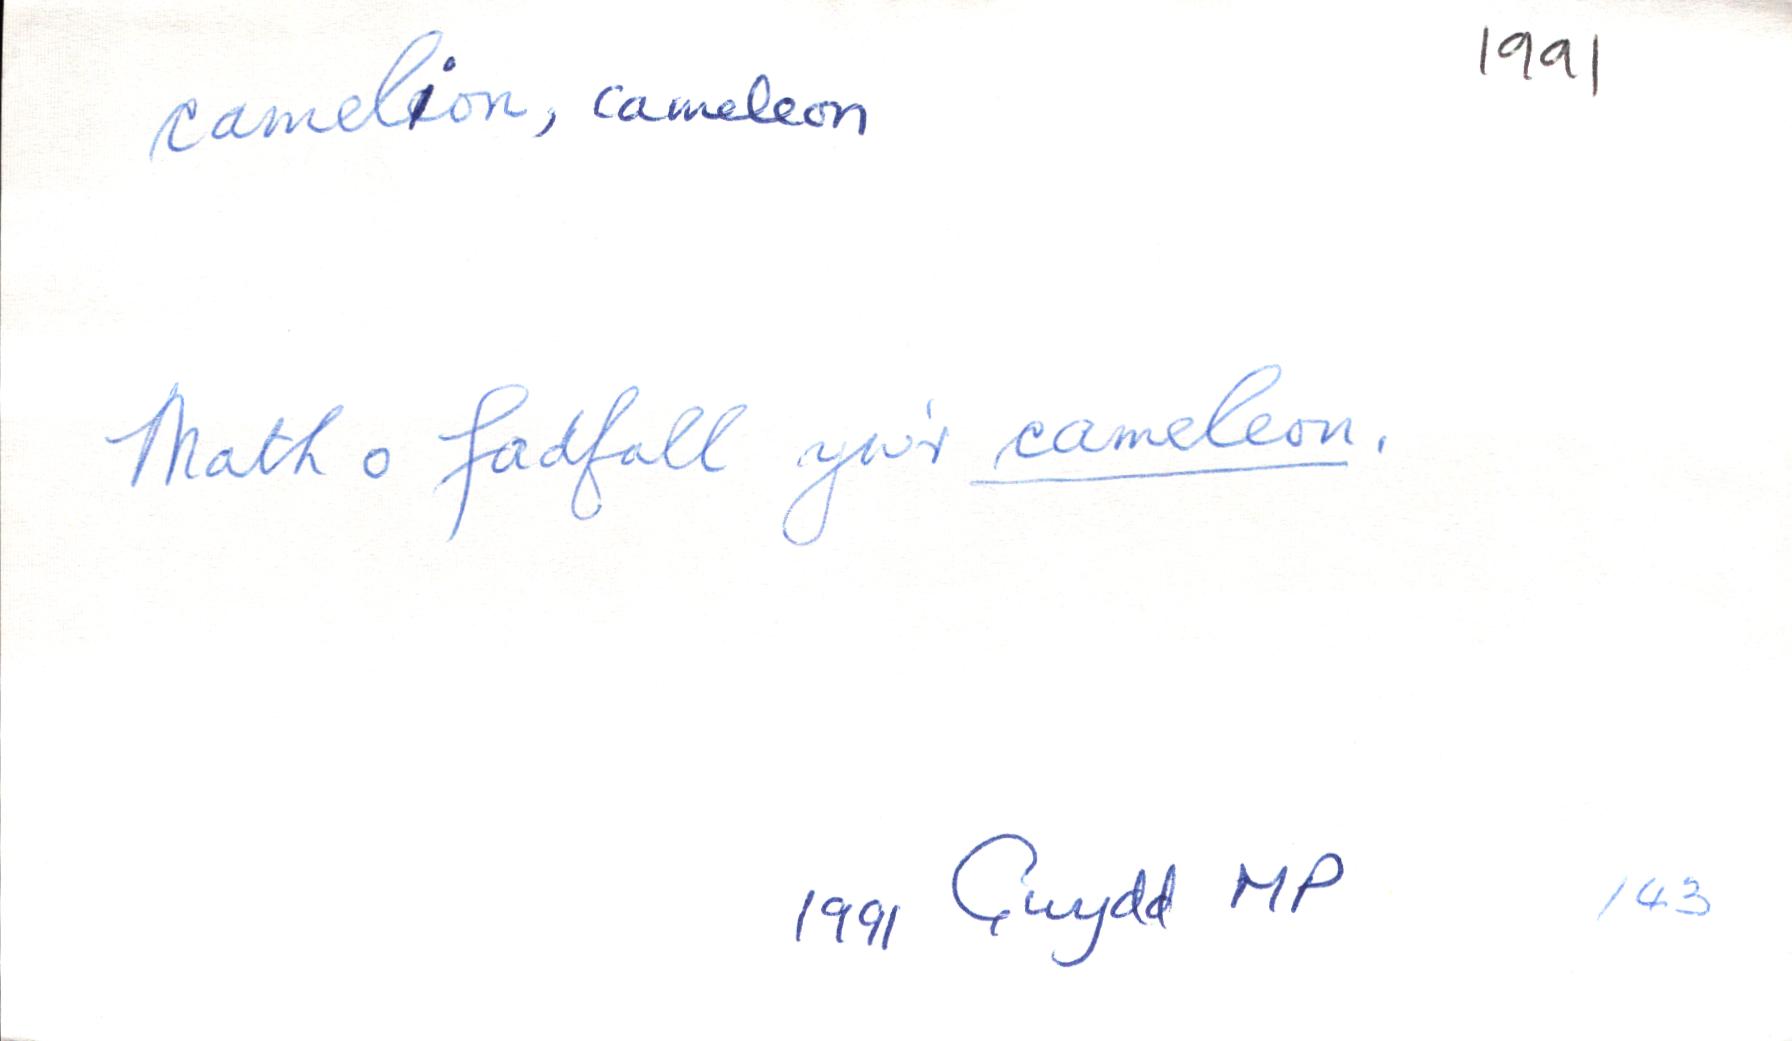 1991
camelion, cameleon
Math o fadfall yw'r cameleon.
1991 Gwydd MP 143